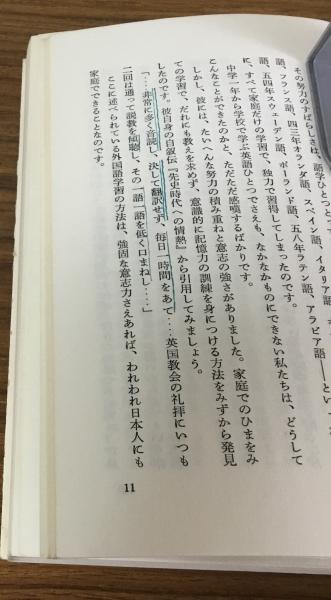 その努力のすばらしさは、
語学ひとつと
語、フランス語、四三年オランダ語、スペイン語、イタリア語、
語、五四年スウェーデン語、ポーランド語、五八年ラテン語、アラビア語――とい
に、すべて家庭だけの学習で、独力で習得してしまったのです。
中学一年から学校で学ぶ英語ひとつでさえも、なかなかものにできない私たちは、どうして
こんなことができたのかと、ただただ感嘆するばかりです。
しかし、彼には、たいへんな努力の積み重ねと意志の強さがありました。家庭でのひまをみ
ての学習で、だれにも教えを求めず、意識的に記憶力の訓練を身につける方法をみずから発見
したのです。彼自身の自叙伝『先史時代への情熱』から引用してみましょう。
「‥‥非常に多く音読し、決して翻訳せず、毎日一時間をあて‥‥英国教会の礼拝にいつも
二回は通って説教を傾聴し、その一語一語を低く口まねし‥‥」
ここに述べられている外国語学習の方法は、強固な意志力さえあれば、われわれ日本人にも
家庭でできることなのです。
11